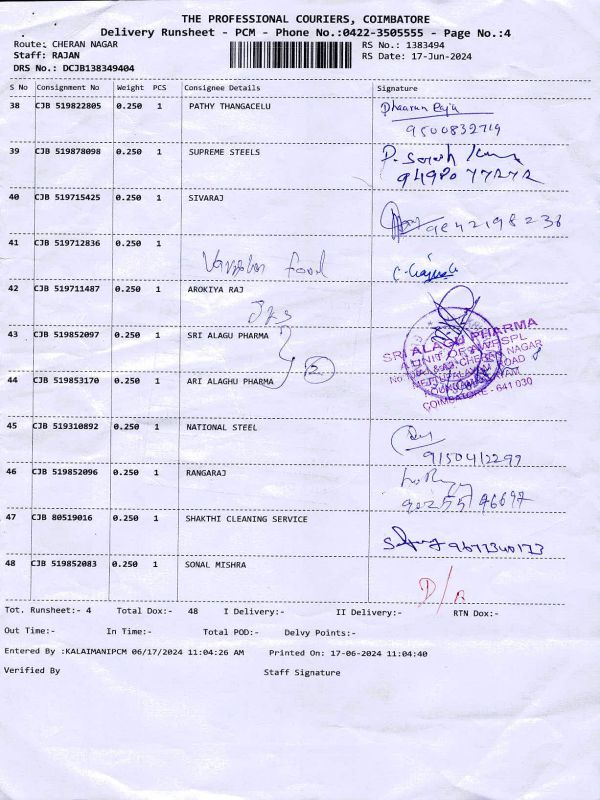 THE PROFESSIONAL COURIERS, COIMBATORE
Delivery Runsheet - PCM - Phone No.:0422-3505555 - Page No.:4
Route: CHERAN NAGAR
RS No.: 1383494
Staff: RAJAN
RS Date: 17-Jun-2024
DRS No.: DCJB138349404
S No Consignment No Weight PCS Consignee Details Signature
38 CJB 519822805 0.250 1 PATHY THANGACELU
9500832719
39 CJB 519878098 0.250 1 SUPREME STEELS
40 CJB 519715425 0.250 1 SIVARAJ
41 CJB 519712836 0.250 1
food
42 CJB 519711487 0.250 1 AROKIYA RAJ
43 CJB 519852097 0.250 1 SRI ALAGU PHARMA
SRI ALAGU PHARMA
A UNIT OF
CHERAN NAGAR
ROAD
COIMBATORE - 641 030
12
44 CJB 519853170 0.250 1 ARI ALAGHU PHARMA
45 CJB 519310892 0.250 1 NATIONAL STEEL
9150412299
46 CJB 519852096 0.250 1 RANGARAJ
47 CJB 80519016 0.250 1 SHAKTHI CLEANING SERVICE
48 CJB 519852083 0.250 1 SONAL MISHRA
D/R
Tot. Runsheet:- 4 Total Dox:- 48 I Delivery:- II Delivery:- RTN Dox:-
Out Time:- In Time:- Total POD:- Delvy Points:-
Entered By :KALAIMANIPCM 06/17/2024 11:04:26 AM Printed On: 17-06-2024 11:04:40
Verified By Staff Signature